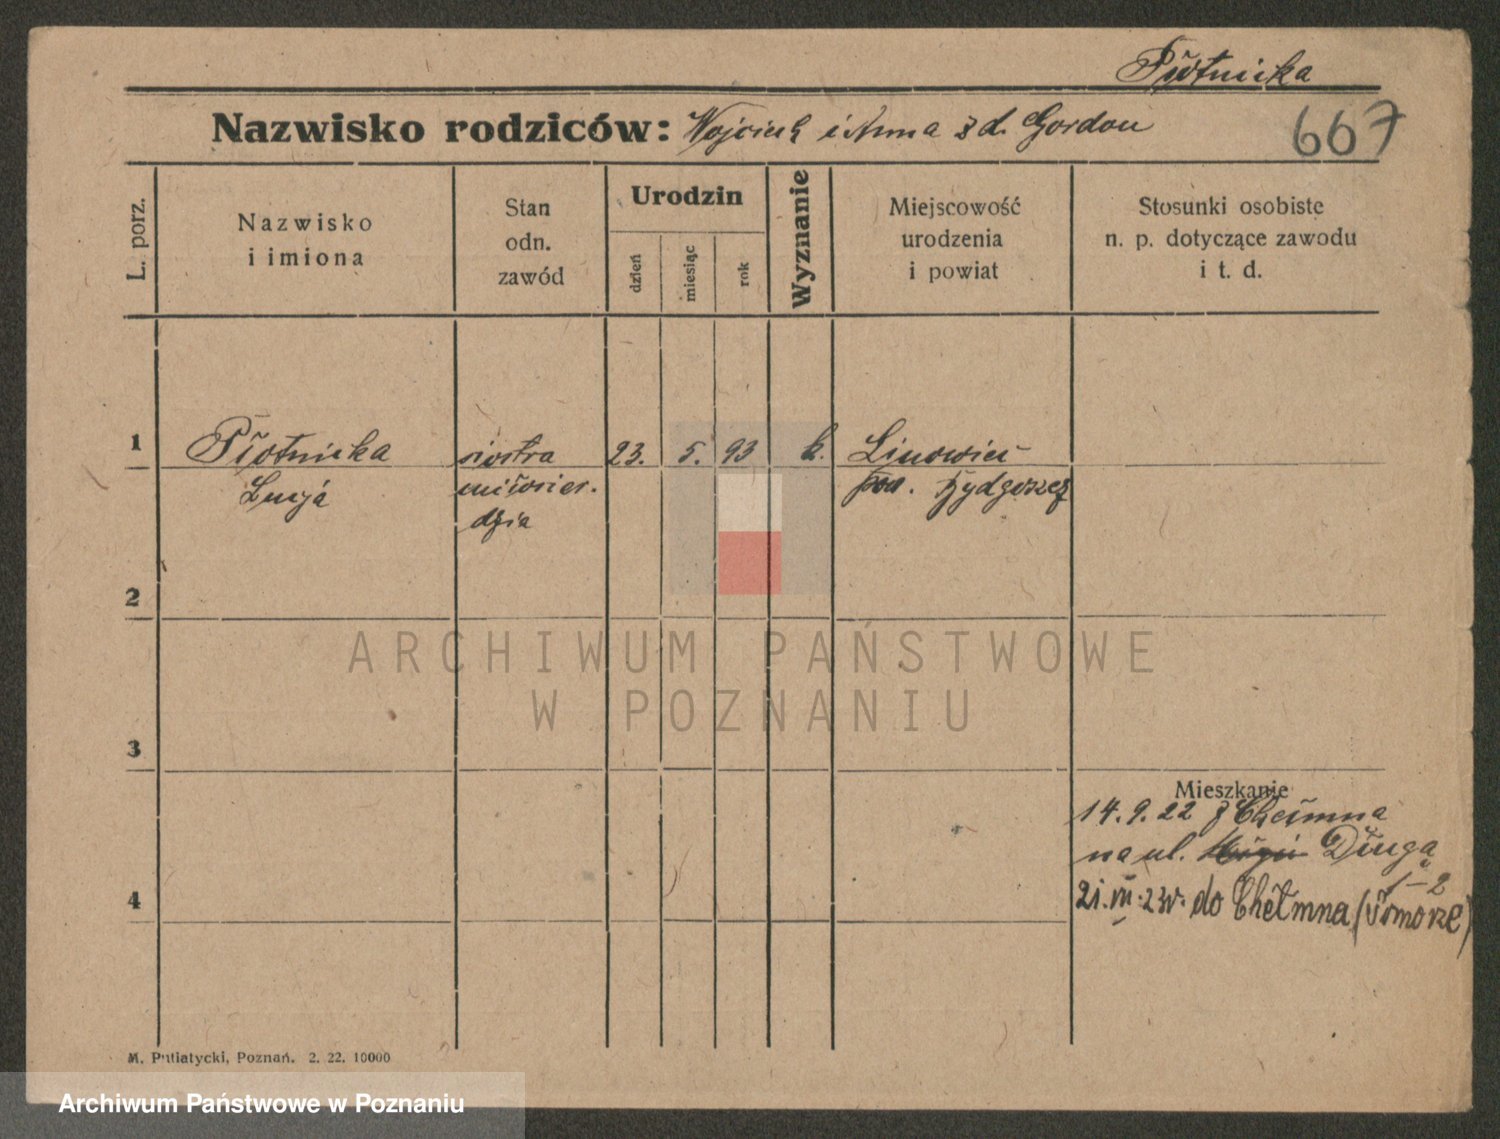 Płotnicka
Nazwisko rodziców: Wojciech i Anna z d. Gordon
667
L. porz.
Nazwisko
i imiona
Stan
odn.
zawód
Urodzin
dzień
miesiąc
rok
Wyznanie
Miejscowość
urodzenia
i powiat
Stosunki osobiste
n. p. dotyczące zawodu
i t. d.
1
Płotnicka siostra 23. 5. 93 k. Linowiec
Lucja miłosier. pow. Bydgoszcz
dzia
2
ARCHIWUM PAŃSTWOWE
W POZNANIU
3
Mieszkanie
14. 9. 22 z Chełmna
na ul. Długą
1-2
4
21. VII. 23r. do Chełmna (Pomorze)
M. Putiatycki, Poznań. 2. 22. 10000
Archiwum Państwowe w Poznaniu